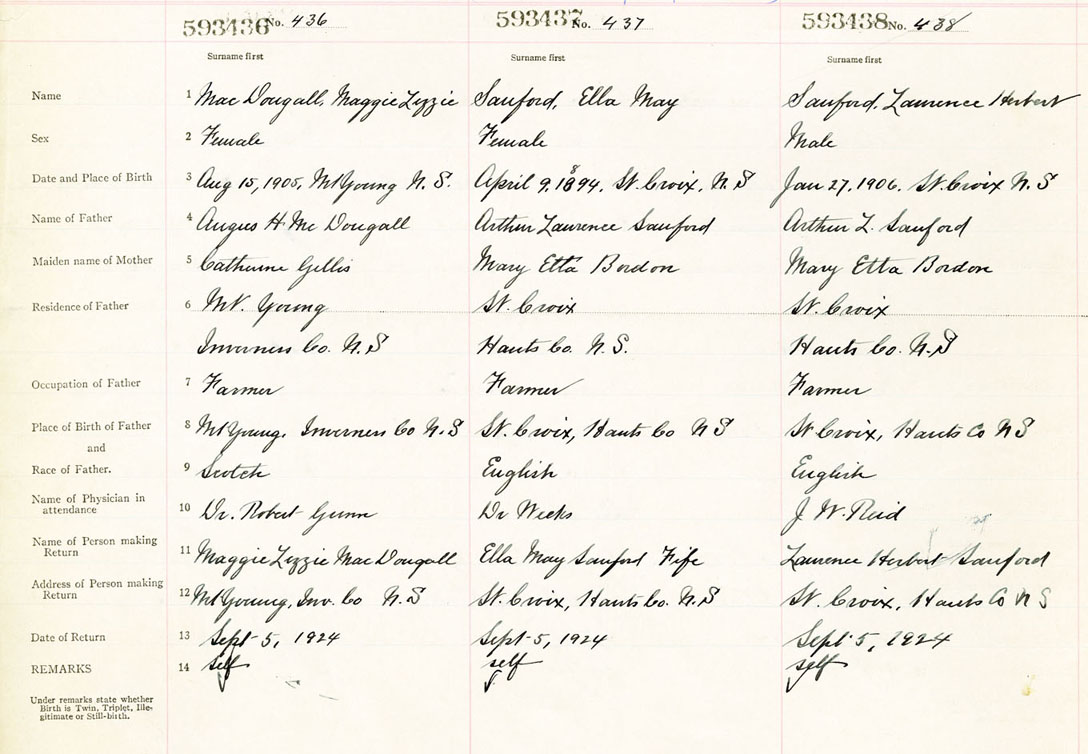 593436 No. 436 593437 No. 437 593438 No. 438
Surname first Surname first Surname first
Name 1 Mac Dougall, Maggie Lizzie Sanford, Ella May Sanford, Laurence Herbert
Sex 2 Female Female Male
Date and Place of Birth 3 Aug 15, 1905, Mt Young N. S. April 9, 1894, St. Croix, N. S Jan 27, 1906. St. Croix N. S
Name of Father 4 Angus H. Mc Dougall Arthur Laurence Sanford Arthur L. Sanford
Maiden name of Mother 5 Catherine Gillis Mary Etta Bordon Mary Etta Bordon
Residence of Father 6 Mt. Young St. Croix St. Croix
Inverness Co. N. S Hants Co. N. S. Hants Co. N. S
Occupation of Father 7 Farmer Farmer Farmer
Place of Birth of Father 8 Mt Young, Inverness Co N. S St. Croix, Hants Co N S St Croix, Hants Co N S
and
Race of Father. 9 Scotch English English
Name of Physician in
attendance 10 Dr. Robert Gunn Dr Weeks J. W. Reid
Name of Person making
Return 11 Maggie Lizzie MacDougall Ella May Sanford Fife Laurence Herbert Sanford
Address of Person making
Return 12 Mt Young, Inv. Co N. S St. Croix, Hants Co. N. S St. Croix, Hants Co N S
Date of Return 13 Sept 5, 1924 Sept 5, 1924 Sept 5, 1924
REMARKS 14 self self self
Under remarks state whether
Birth is Twin, Triplet, Ille-
gitimate or Still-birth.